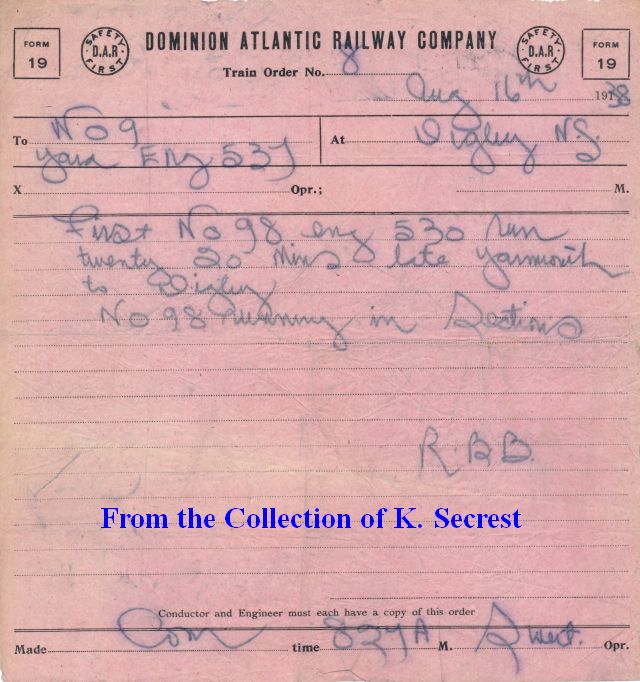 FORM 19
SAFETY D.A.R FIRST
DOMINION ATLANTIC RAILWAY COMPANY
SAFETY D.A.R FIRST
FORM 19
Train Order No. 8
Aug 16th 1938
To No 9
At Digby NS.
Yard Eng 537
X Opr.; M.
First No 98 eng 530 run
twenty 20 Mins late Yarmouth
to Digby
No 98 running in Sections
R.B.B.
From the Collection of K. Secrest
Conductor and Engineer must each have a copy of this order
Made Com time 827 A M. Opr.